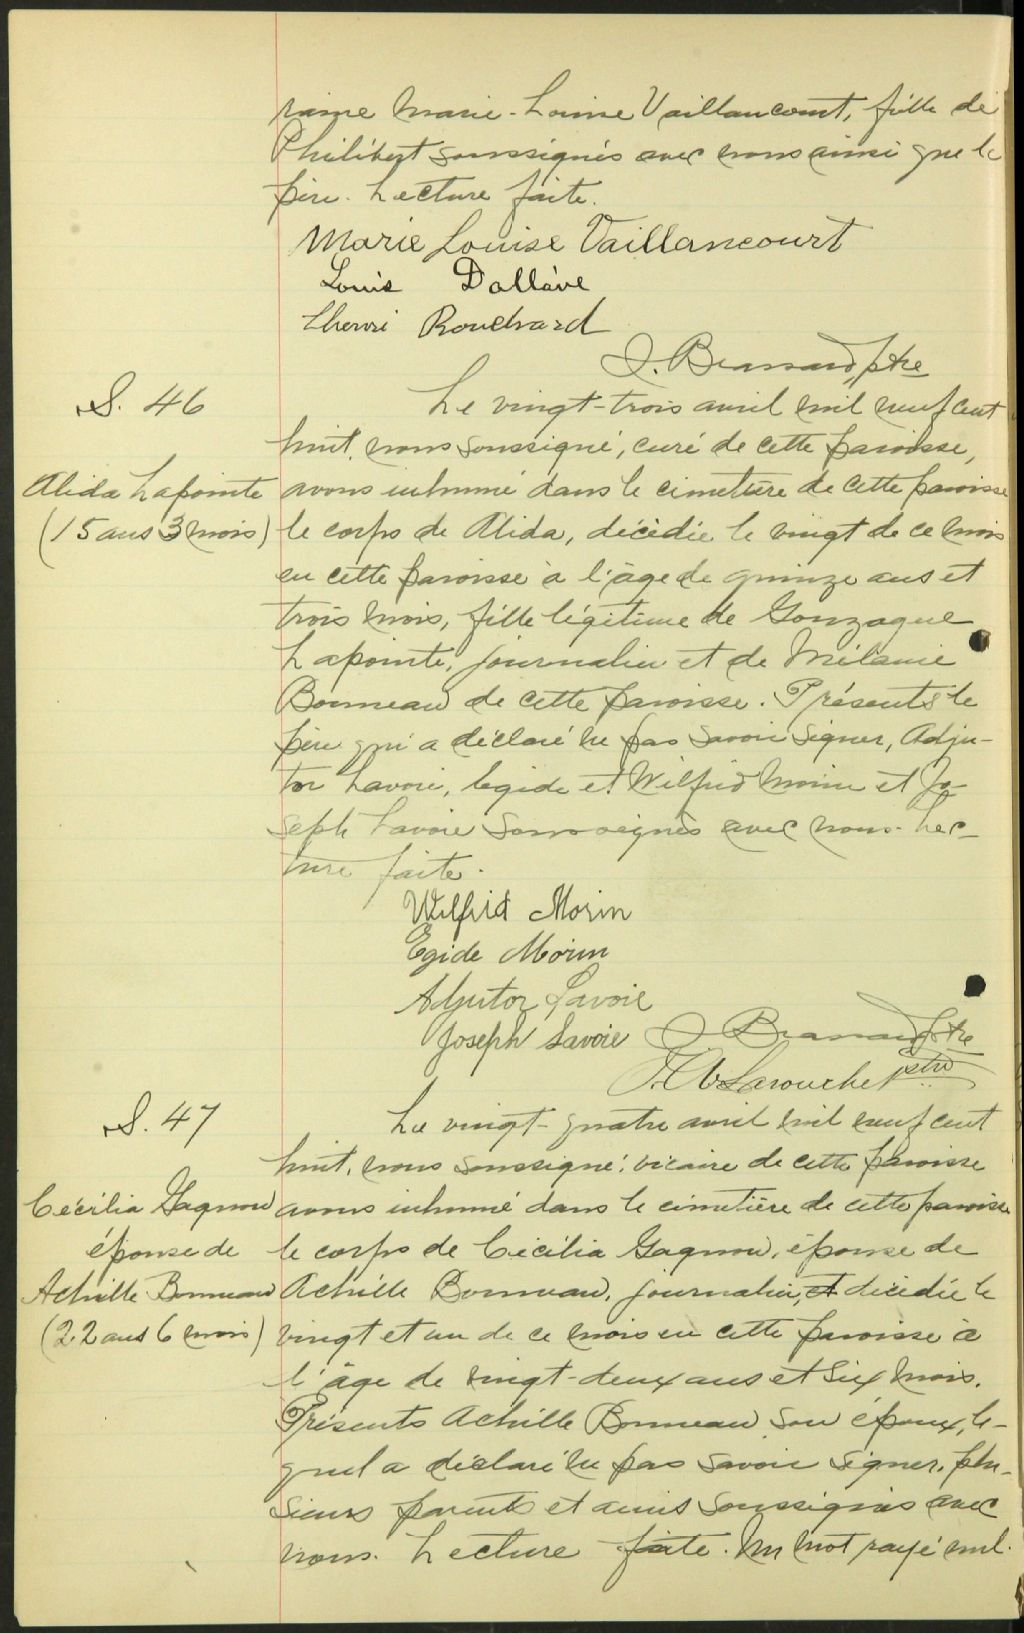 raine Marie-Louise Vaillancourt, fille de
Philibert soussignés avec nous ainsi que le
père. Lecture faite.
Marie Louise Vaillancourt
Louis Dallaire
Thomri Bouchard
J. Brassard, ptre
S. 46
Le vingt-trois avril mil neuf cent
huit, nous soussigné, curé de cette paroisse,
Alida Lapointe
(15 ans 3 mois)
avons inhumé dans le cimetière de cette paroisse
le corps de Alida, décédée le vingt de ce mois
en cette paroisse à l'âge de quinze ans et
trois mois, fille légitime de Gonzague
Lapointe, journalier et de Mélanie
Bonneau de cette paroisse. Présents le
père qui a déclaré ne pas savoir signer, Adju-
tor Lavoie, Egide et Wilfrid Morin et Jo-
seph Lavoie soussignés avec nous. Lec-
ture faite.
Wilfrid Morin
Egide Morin
Adjutor Lavoie
Joseph Lavoie J. Brassard, ptre
Larouche ptre
S. 47
Le vingt-quatre avril mil neuf cent
huit, nous soussigné, vicaire de cette paroisse
Cécilia Gagnon
épouse de
Achille Bonneau
(22 ans 6 mois)
avons inhumé dans le cimetière de cette paroisse
le corps de Cécilia Gagnon, épouse de
Achille Bonneau, journalier, et décédée le
vingt et un de ce mois en cette paroisse à
l'âge de vingt-deux ans et six mois.
Présents Achille Bonneau son époux, le-
quel a déclaré ne pas savoir signer, plu-
sieurs parents et amis soussignés avec
nous. Lecture faite. Un mot rayé nul.